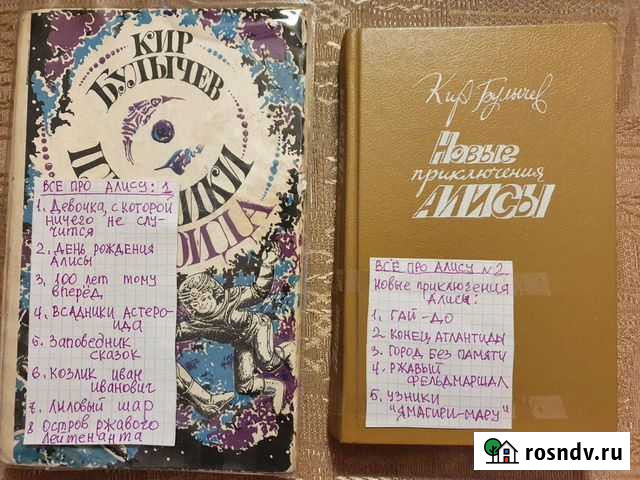 КИР
БУЛЫЧЕВ
ВСЕ ПРО АЛИСУ: 1
1. Девочка, с которой
ничего не слу-
чится
2. День рождения
Алисы
3. 100 лет тому
вперёд
4. Всадники астеро-
ида
5. Заповедник
сказок
6. Козлик Иван
Иванович
7. Лиловый шар
8 Остров ржавого
лейтенанта
Кир Булычев
Новые
приключения
АЛИСЫ
ВСЁ ПРО АЛИСУ №2
Новые приключения
Алисы:
1. ГАЙ-ДО
2 КОНЕЦ АТЛАНТИДЫ
3. ГОРОД БЕЗ ПАМЯТИ
4. РЖАВЫЙ
ФЕЛЬДМАРШАЛ
5. УЗНИКИ
"ЯМАГИРИ-МАРУ"
rosndv.ru